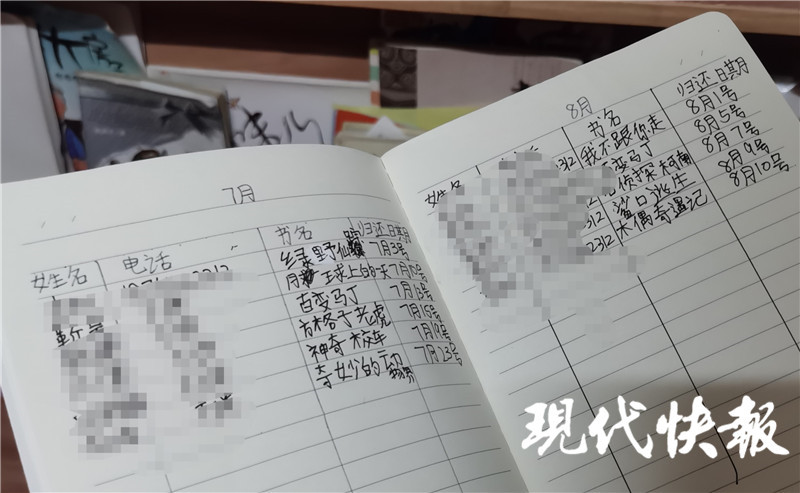 7月
姓名 电话 书名 归还日期
绿野仙踪 7月3号
地球上的一天 7月10号
百变马丁 7月13号
方格子老虎 7月15号
神奇校车 7月19号
奇妙的 7月23号
8月
姓名 书名 归还日期
2312 我不跟你走 8月1号
变马丁 8月5号
侦探柯南 8月7号
2312 鲨口逃生 8月9号
2312 木偶奇遇记 8月10号
現代快報